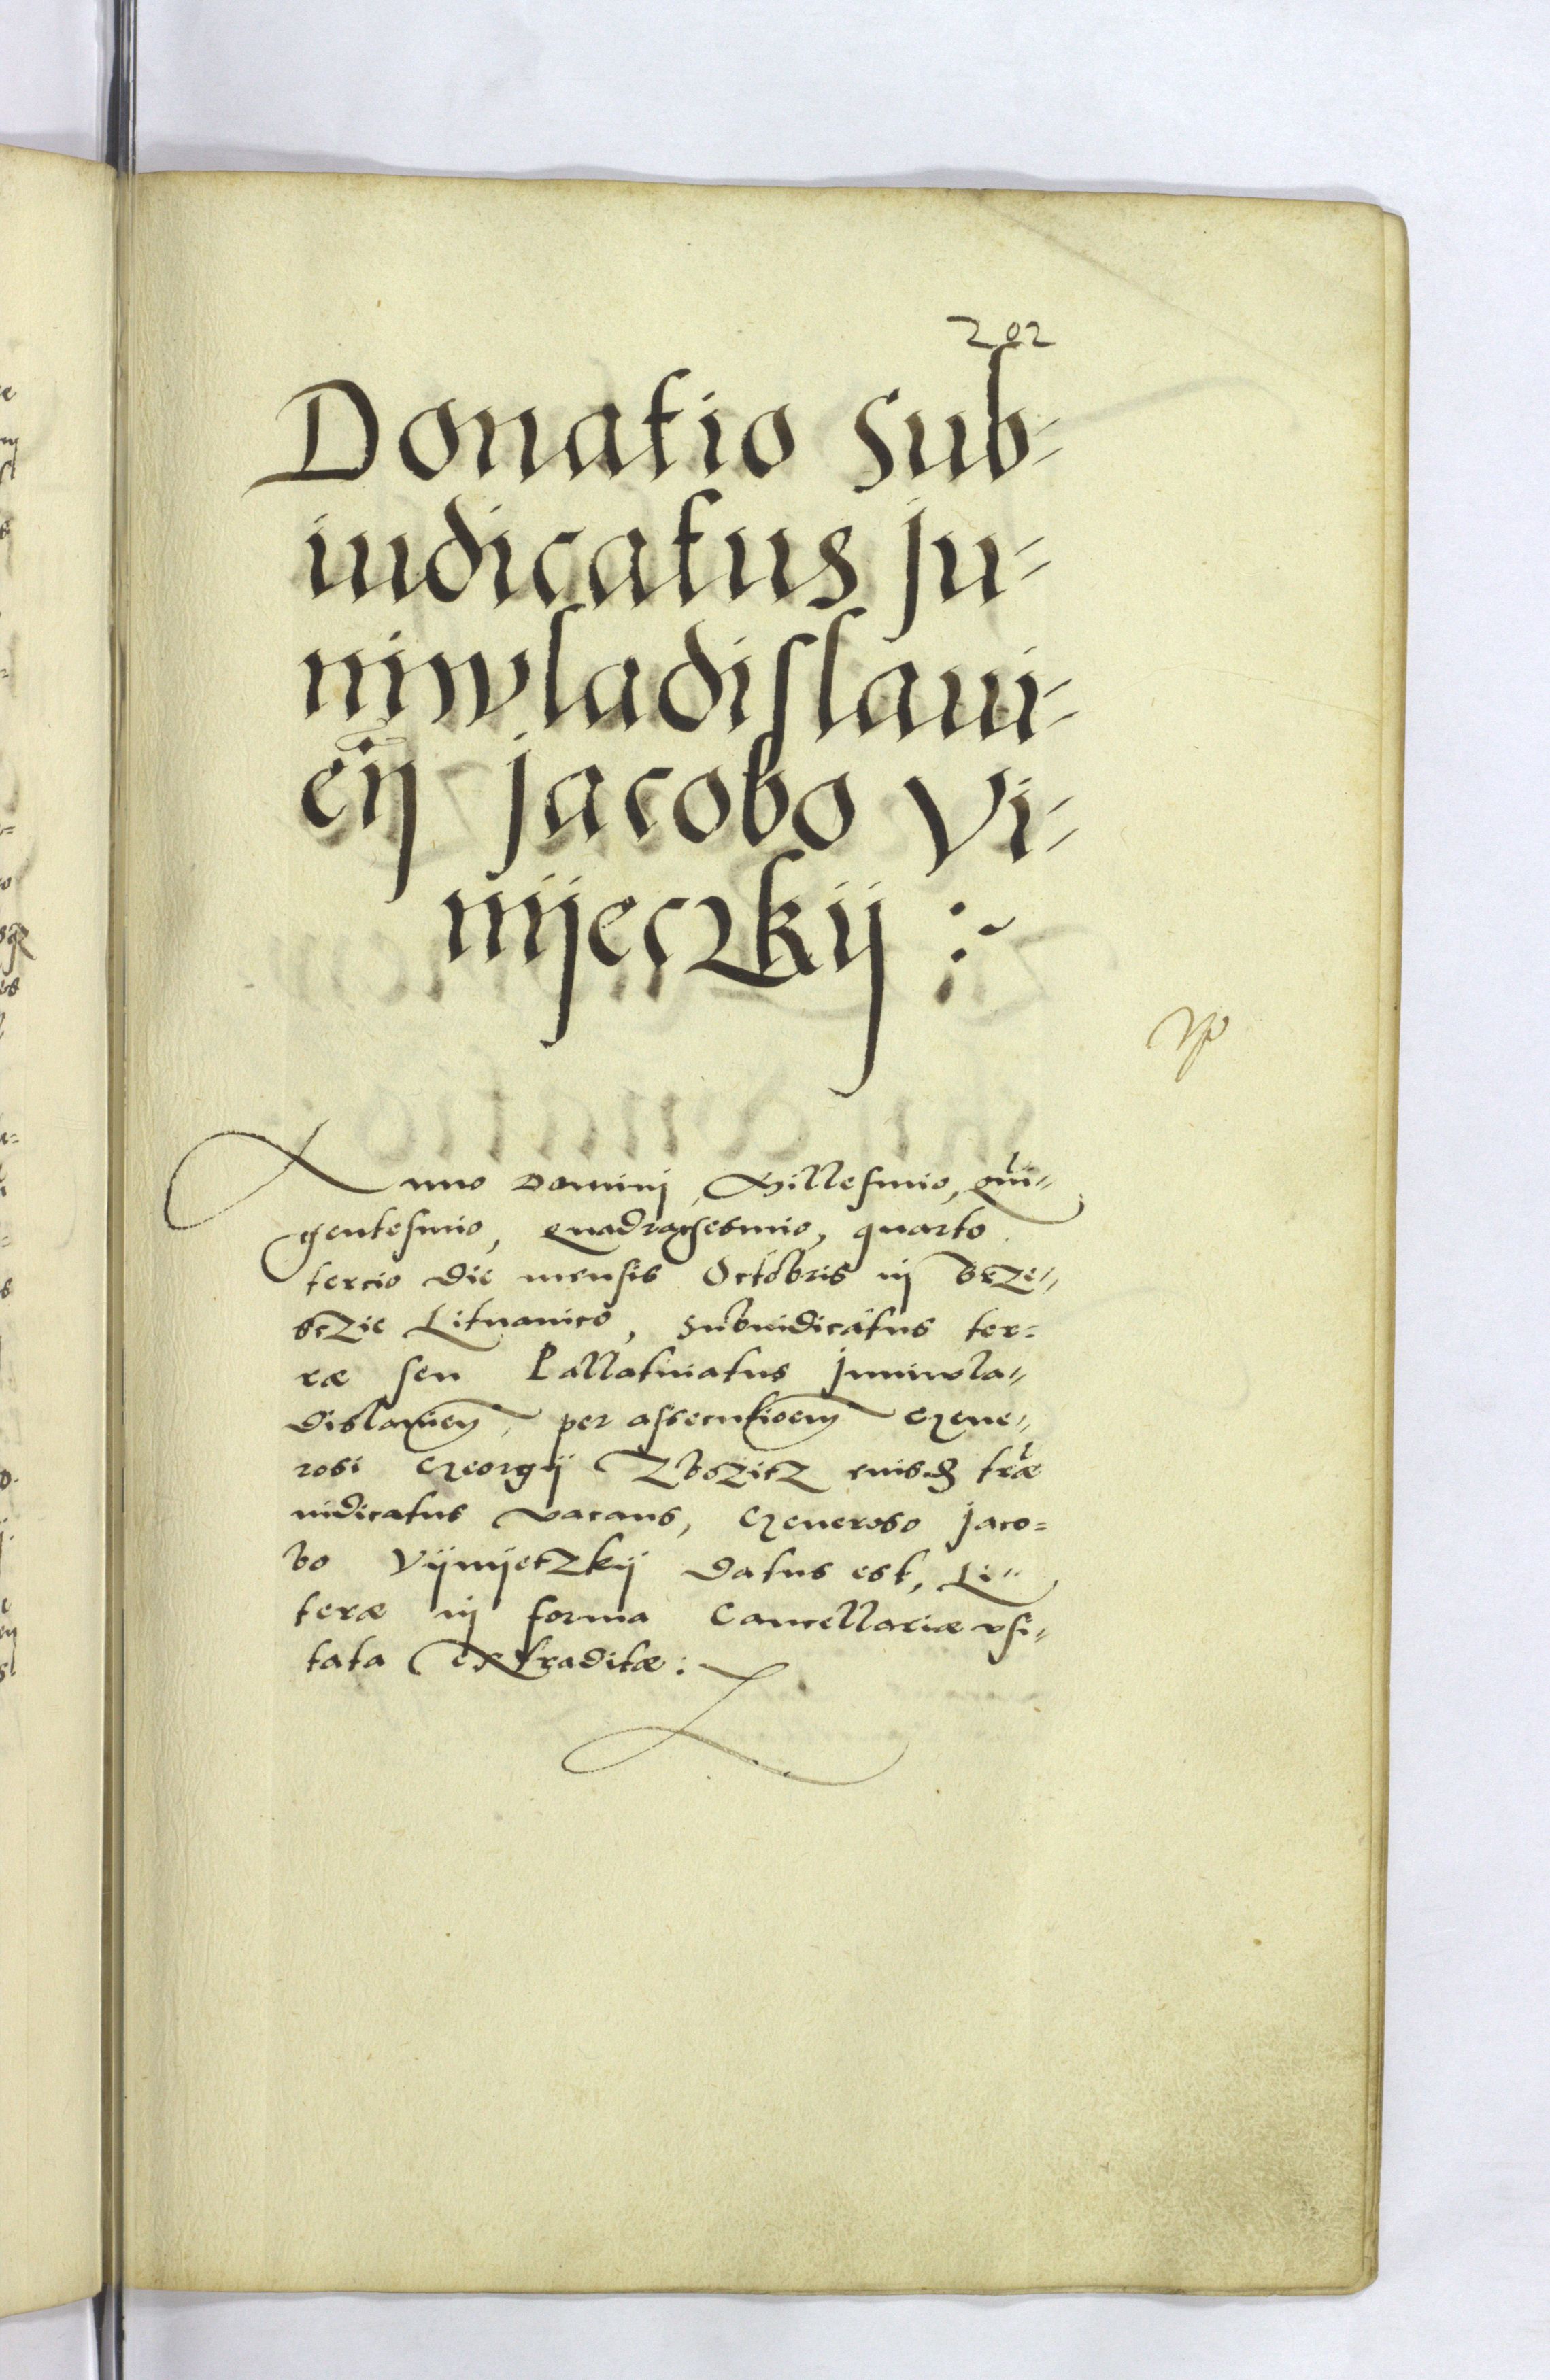 202
Donatio sub-
iudicatus Ju-
niwladislaui-
eñ Jacobo Vi-
nijeczkij :~
Anno Dominj Millesimo, qui-
gentesimo, quadragesimo, quarto
tercio die mensis Octobris in Brze-
sczie Lituanico, subiudicatus ter-
ræ seu Pallatinatus Juniwla-
dislavien, per assecutioem Gene-
rosi Georgij eiusdē træ
iudicatus vacans, Generoso Jaco-
bo Vijnijetzkij datus est, Li-
teræ in forma Cancellariæ vsi-
tata extraditæ: